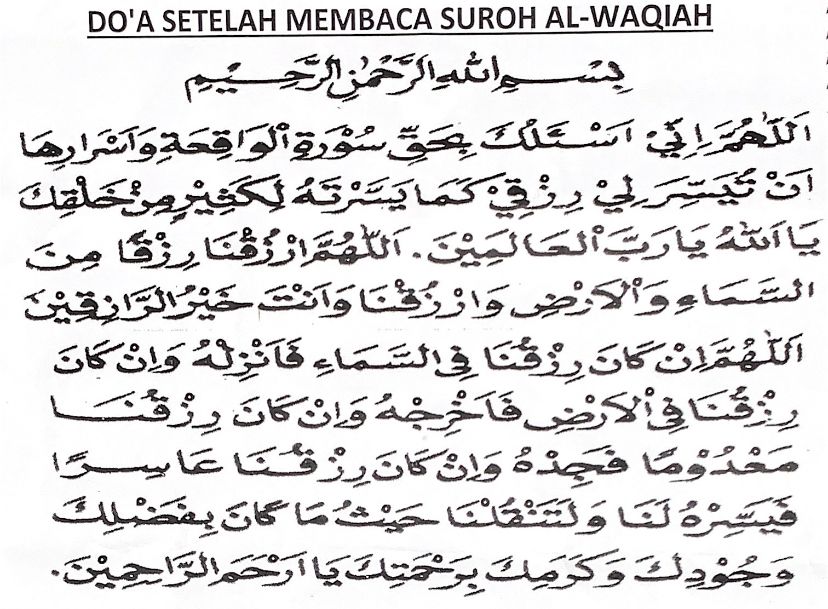 DO'A SETELAH MEMBACA SUROH AL-WAQIAH
بِسْمِ اللهِ الرَّحْمٰنِ الرَّحِيْمِ
اَللّٰهُمَّ اِنِّيْ اَسْئَلُكَ بِحَقِّ سُوْرَةِ الْوَاقِعَةِ وَاَسْرَارِهَا
اَنْ تُيَسِّرَ لِيْ رِزْقِيْ كَمَا يَسَّرْتَهُ لِكَثِيْرٍ مِنْ خَلْقِكَ
يَا اَللهُ يَا رَبَّ الْعَالَمِيْنَ. اَللّٰهُمَّ ارْزُقْنَا رِزْقًا مِنَ
السَّمَاءِ وَالْاَرْضِ وَارْزُقْنَا وَاَنْتَ خَيْرُ الرَّازِقِيْنَ
اَللّٰهُمَّ اِنْ كَانَ رِزْقُنَا فِى السَّمَاءِ فَاَنْزِلْهُ وَاِنْ كَانَ
رِزْقُنَا فِى الْاَرْضِ فَاَخْرِجْهُ وَاِنْ كَانَ رِزْقُنَا
مَعْدُوْمًا فَجِدْهُ وَاِنْ كَانَ رِزْقُنَا عَاسِرًا
فَيَسِّرْهُ لَنَا وَلَتَنْقُلْنَا حَيْثُ مَا كَانَ بِفَضْلِكَ
وَجُوْدِكَ وَكَرَمِكَ بِرَحْمَتِكَ يَا اَرْحَمَ الرَّاحِمِيْنَ.